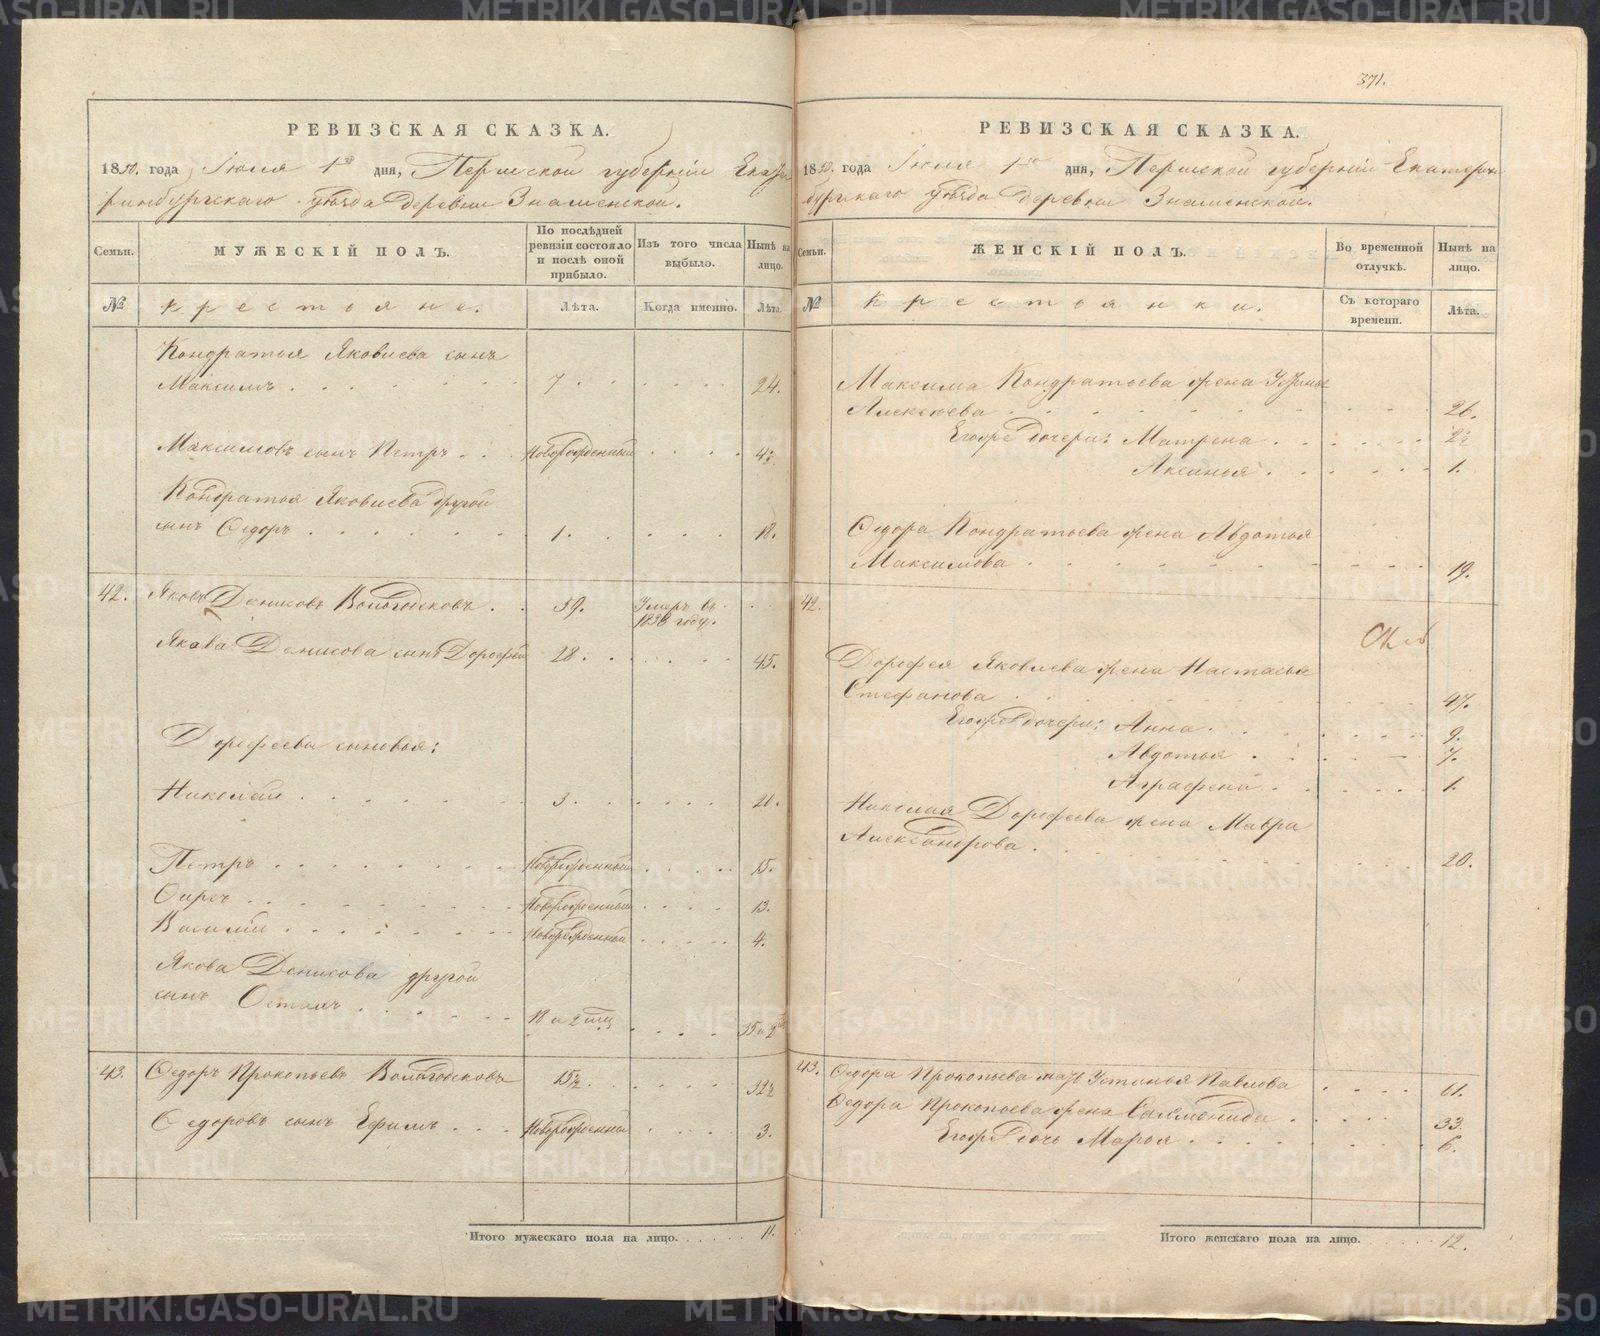 371.
РЕВИЗСКАЯ СКАЗКА.
1850. года Июля 1го дня, Пермской губерніи Екате
ринбургскаго уѣзда деревни Знаменской.
Семьи.
МУЖЕСКІЙ ПОЛЪ.
По послѣдней ревизіи состояло и послѣ оной прибыло.
Изъ того числа выбыло.
Нынѣ на лицо.
№
Крестьяне.
Лѣта.
Когда именно.
Лѣта.
Кондратья Яковлева сынъ
Максимъ 7 24.
Максимовъ сынъ Петръ Новорожденный 4½
Кондратья Яковлева другой
сынъ Ѳедоръ 1. 18.
42. Яковъ Денисовъ Вологодсковъ 59. Умеръ въ 1838 году.
Якова Денисова сынъ Дорофей 28. 45.
Дорофеевы сыновья:
Николай 3. 20.
Петръ Новорожденный 15.
Новорожденный 13.
Василій Новорожденный 4.
Якова Денисова другой
сынъ Остапъ 18 и 2 мѣц 35 и 2
43. Ѳедоръ Прокопьевъ Вологодсковъ 15½ 32½
Ѳедоровъ сынъ Ефимъ Новорожденный 3.
Итого мужескаго пола на лицо. 11.
РЕВИЗСКАЯ СКАЗКА.
1850. года Июля 1го дня, Пермской губерніи Екатерин
бургскаго уѣзда деревни Знаменской.
Семьи.
ЖЕНСКІЙ ПОЛЪ.
Во временной отлучкѣ.
Нынѣ на лицо.
№
Крестьянки.
Съ котораго времени.
Лѣта.
Максима Кондратьева жена Устинья
Алексѣева 26.
Егожъ дочери: Матрена 2½
Аксинья 1.
Ѳедора Кондратьева жена Авдотья
Максимова 19.
42.
Дорофея Яковлева жена Настасья
Степанова 47.
Егожъ дочери: Анна 9.
Авдотья 7.
Аграфена 1.
Николая Дорофеева жена Мавра
Александрова 20.
43. Ѳедора Прокопьева мать Устинья Павлова 61.
Ѳедора Прокопьева жена Саламонида 33.
Егожъ дочь Марья 6.
Итого женскаго пола на лицо. 12.
METRIKI.GASO-URAL.RU